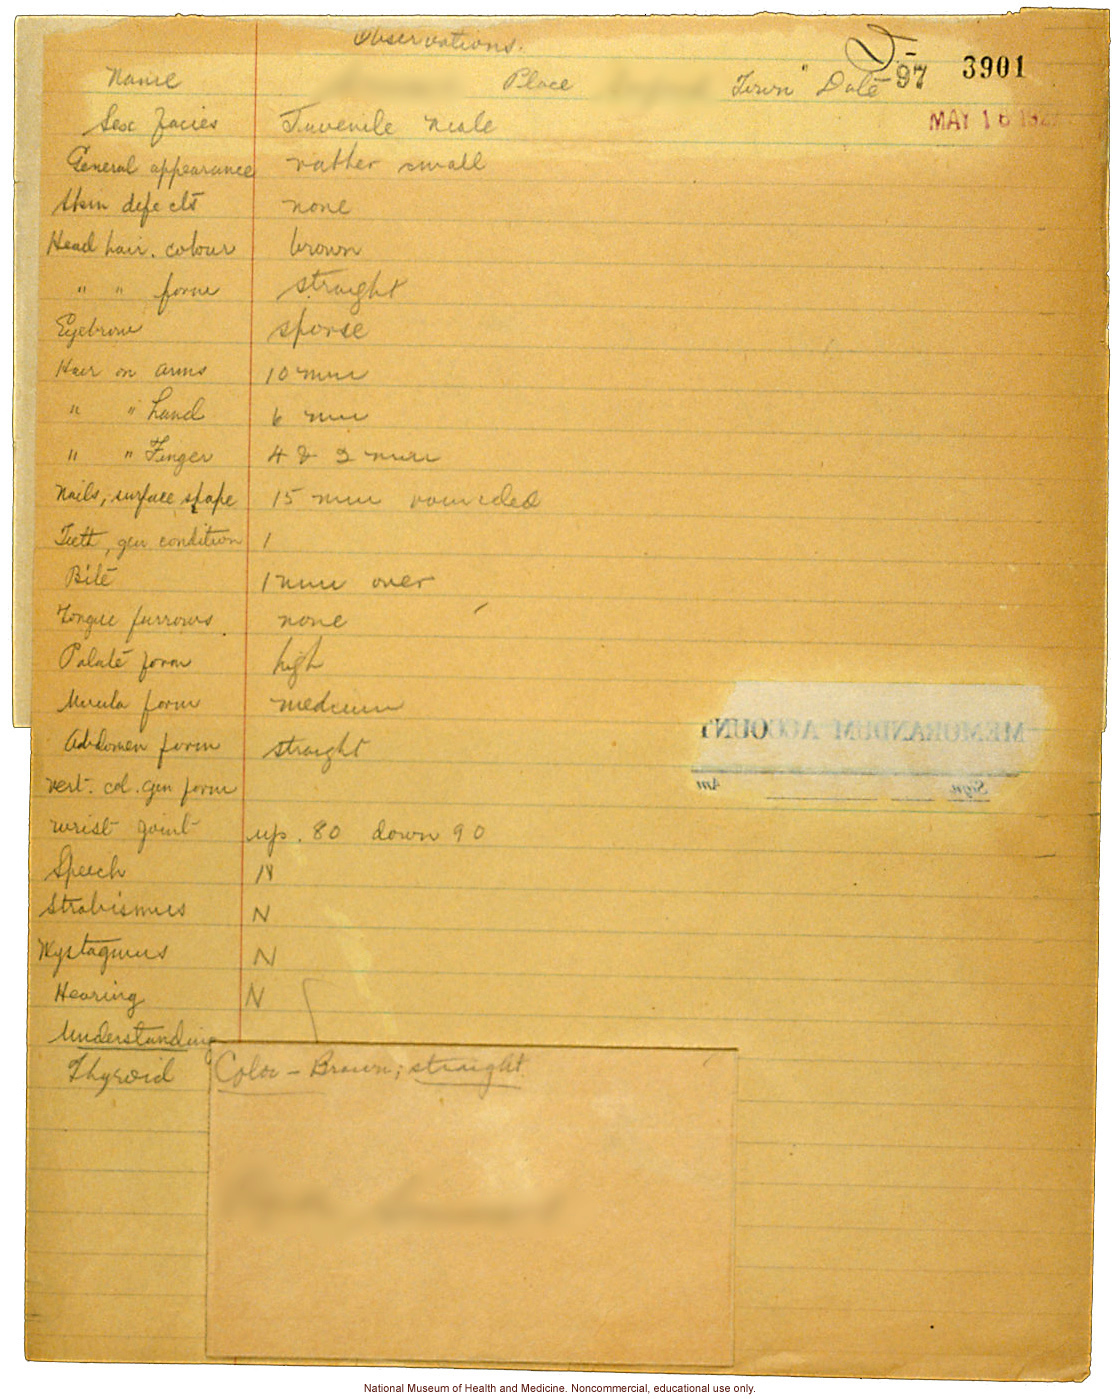 Observations.
Name Place Town Date D-97 3901
MAY 16 192
Sex facies Juvenile male
General appearance rather small
Skin defects none
Head hair. colour brown
" " form straight
Eyebrow sparse
Hair on arms 10 mm
" " hand 6 mm
" " Finger 4 & 2 mm
Nails, surface shape 15 mm rounded
Teeth, gen condition 1
Bite 1 mm over
Tongue furrows none
Palate form high
Uvula form medium
Abdomen form straight
vert. col. gen form
wrist joint up. 80 down 90
Speech N
Strabismus N
Nystagmus N
Hearing N
Understanding
Thyroid
Color - Brown; straight
MEMORANDUM ACCOUNT
Sign. Am
National Museum of Health and Medicine. Noncommercial, educational use only.